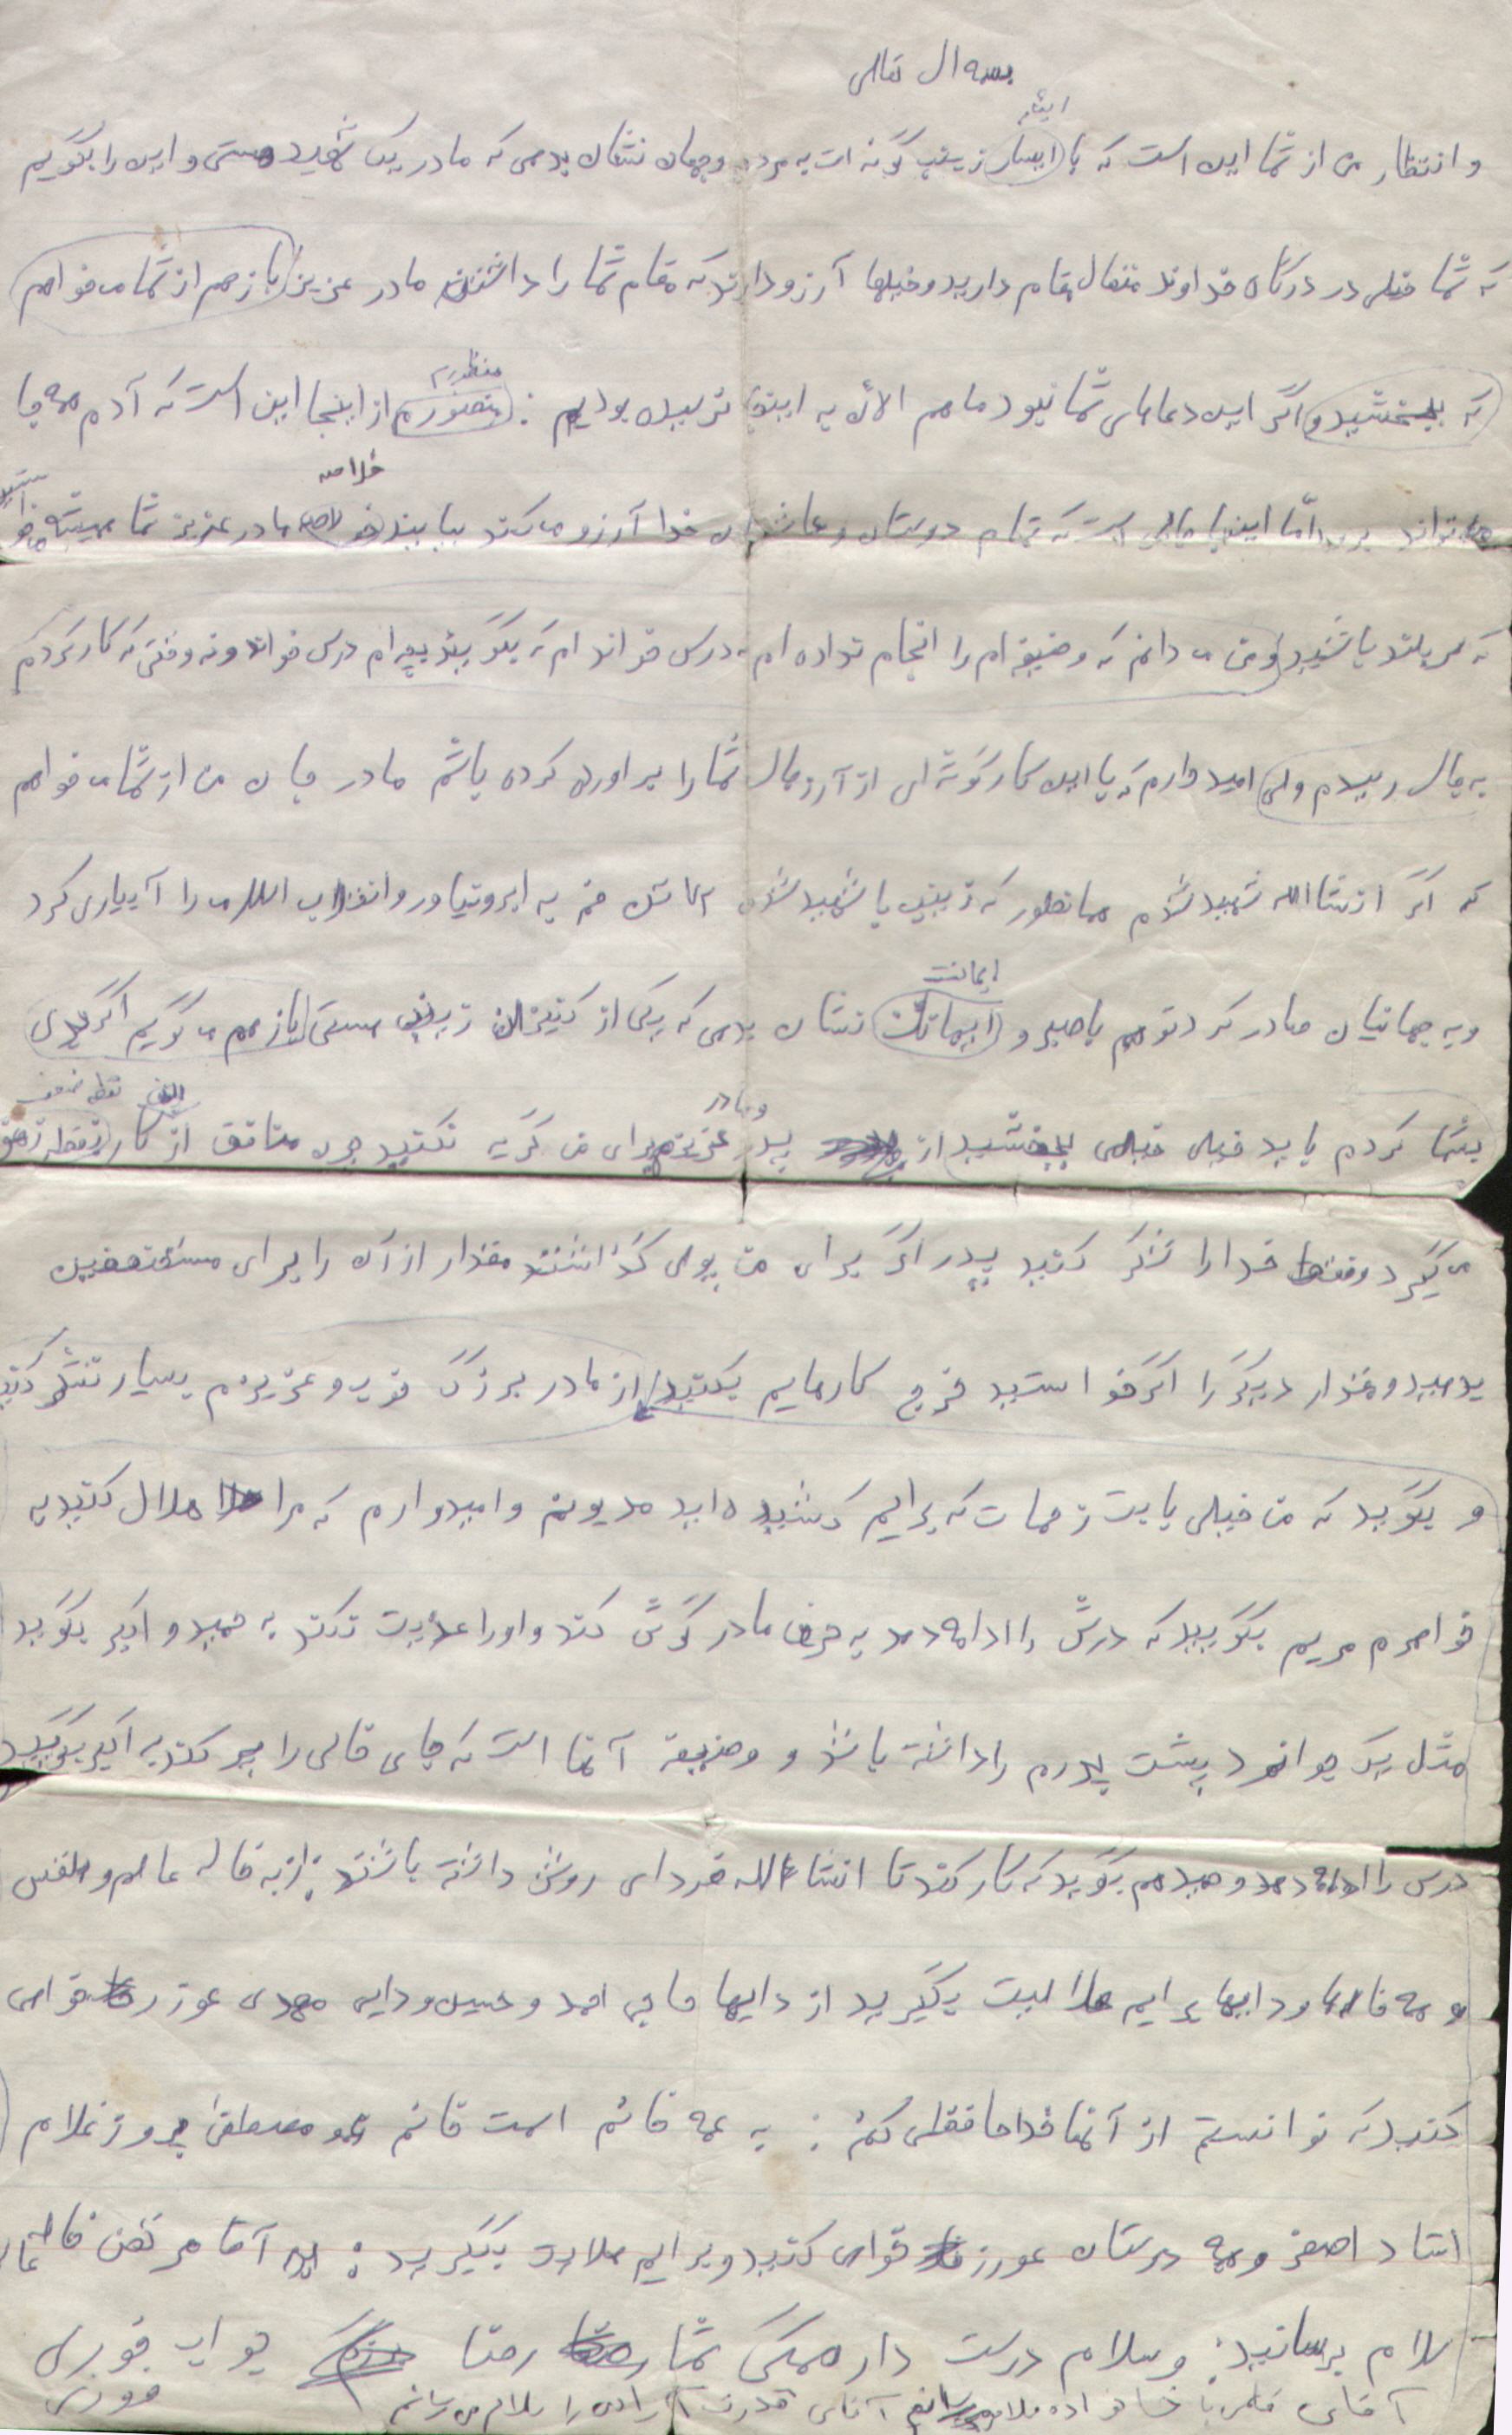 بسمه ال تعالی
ایثار
و انتظار من از شما این است که با ایسار زینب گونه ات به مردم و جهان نشان بدهی که مادر یک شهید هستی و این را بگویم
که شما خیلی در درگاه خداوند متعال مقام دارید و خیلیها آرزو دارند که مقام شما را داشتند مادر عزیز باز هم از شما می خواهم
منظورم
که ببخشید و اگر این دعاهای شما نبود ما هم الان به اینجا نرسیده بودیم : منضورم از اینجا این است که آدم همه جا
خلاصه
می تواند برود اما اینجا جایی است که تمام دوستان و عاشقان خدا آرزو می کنند بیایند خولاصه مادر عزیز شما همیشه
که سر بلند باشید و من می دانم که وضیفه ام را انجام نداده ام نه درس خوانده ام که بگویند بچه ام درس خوانده و نه وقتی که کار کردم
به جای رسیدم ولی امیدوارم که با این کار گوشه ای از آرزهای شما را براورده کرده باشم مادر جان من از شما می خواهم
که اگر انشاالله شهید شدم همانطور که زینب با شهید شدن کسانش خم به ابرو نیاورد و انقلاب اسلامی را آبیاری کرد
ایمانت
و به جهانیان صادر کرد تو هم با صبر و ایمانت نشان بدهی که یکی از کنیزان زینب هستی باز هم می گویم اگر بدی
و مادر
بشما کردم باید خیلی خیلی ببخشید از پدر عزیزم برای من گریه نکنید چون منافق از کار نقطه ضعف
می گیرد و فقط خدا را شکر کنید پدر اگر برای من پولی گذاشتند مقدار از آن را برای مستضعفین
بدهید و مقدار دیگر را اگر خواستید خرج کارهایم بکنید از مادر بزرگ خوب و عزیزم بسیار تشکر کنید
و بگوید که من خیلی بابت زحمات که برایم کشیده اید مدیونم و امیدوارم که مرا حلال کنید به
خواهرم مریم بگویید که درسش را ادامه دهد به حرف مادر گوش کند و او را عذیت نکند به حمید و اکبر بگوید
مثل یک جوانمرد پشت پدرم را داشته باشد و وضیفه آنها است که جای خالی را پر کند به اکبر بگویید
درس را ادامه دهد و حمید هم بگوید که کار کند تا انشاءالله فردای روشن داشته باشند : از به خاله
و همه خاله ها و دایها برایم حلالیت بگیرید از دایها حاجی احمد و حسین و دایی مهدی عوزر خواهی
کنید که نوانستم از آنها خداحافظی کنم : به عمه خانم عمو مصطفی غلام
استاد اصغر و همه دوستان عوزر خواهی کنید و برایم حلالیت بگیرید : آقا مرتضی
سلام برسانید : و سلام دوست دار همگی شما رضا جواب فوری
آقای با خانواده سلام می رسانم آقای را سلام می رسانم فوری